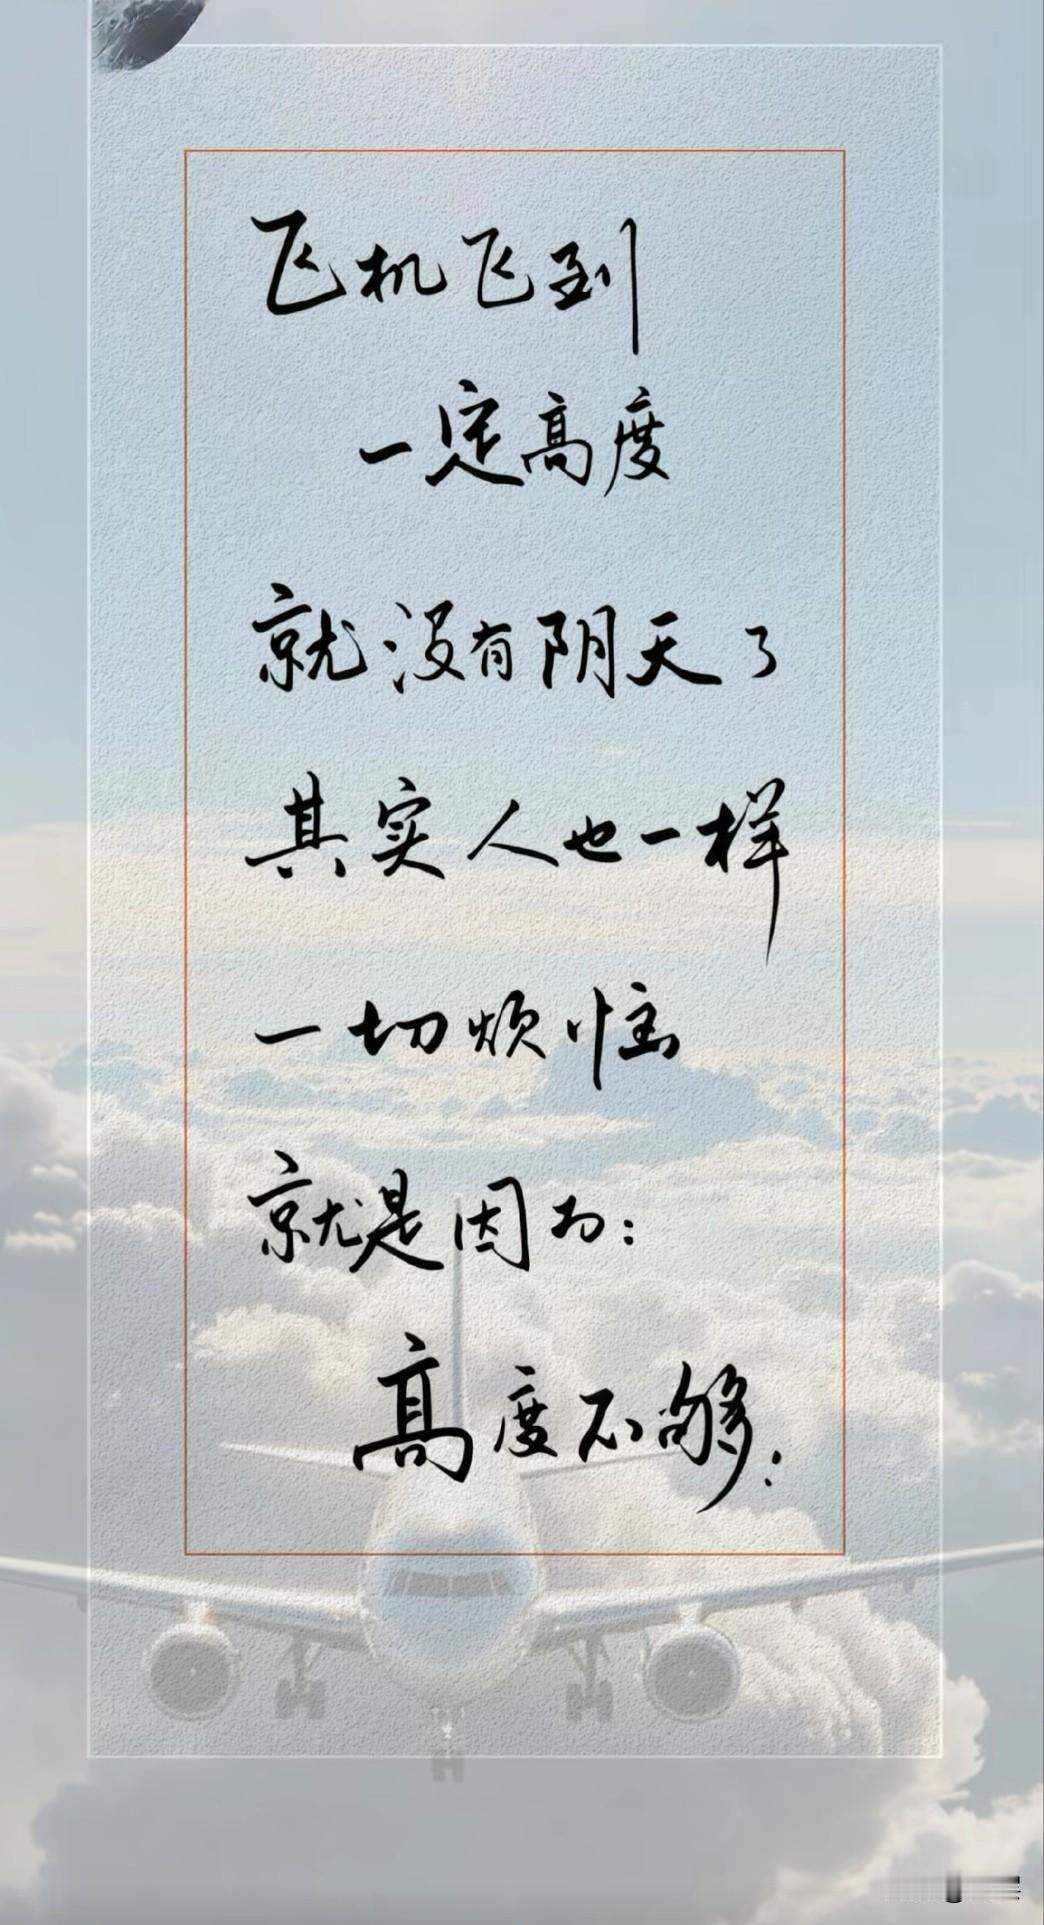 飞机飞到
一定高度
就没有阴天了
其实人也一样
一切烦恼
就是因为:
高度不够;